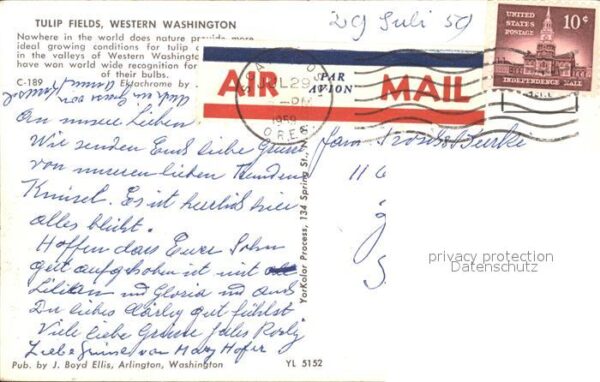 TULIP FIELDS, WESTERN WASHINGTON
Nowhere in the world does nature provide more
ideal growing conditions for tulip
in the valleys of Western Washington
have won world wide recognition for
of their bulbs.
C-189 Ektachrome by
29 Juli 59
UNITED STATES POSTAGE 10¢
INDEPENDENCE HALL
AIR MAIL
PAR AVION
JUL 29
PM
1959
OREG.
An unsere Lieben
Wir senden Euch liebe Grüsse
von unseren lieben
Es ist herrlich hier
alles blüht.
Hoffen dass Euer Sohn
gut aufgehoben ist mit
Lilian und Gloria und auch
Du liebes gut fühlst
Viele liebe Grüsse Jules Rosly
Liebe Grüsse von Mary Hofer
Fam.
116
YorKolor Process, 134 Spring St.
privacy protection
Datenschutz
Pub. by J. Boyd Ellis, Arlington, Washington YL 5152